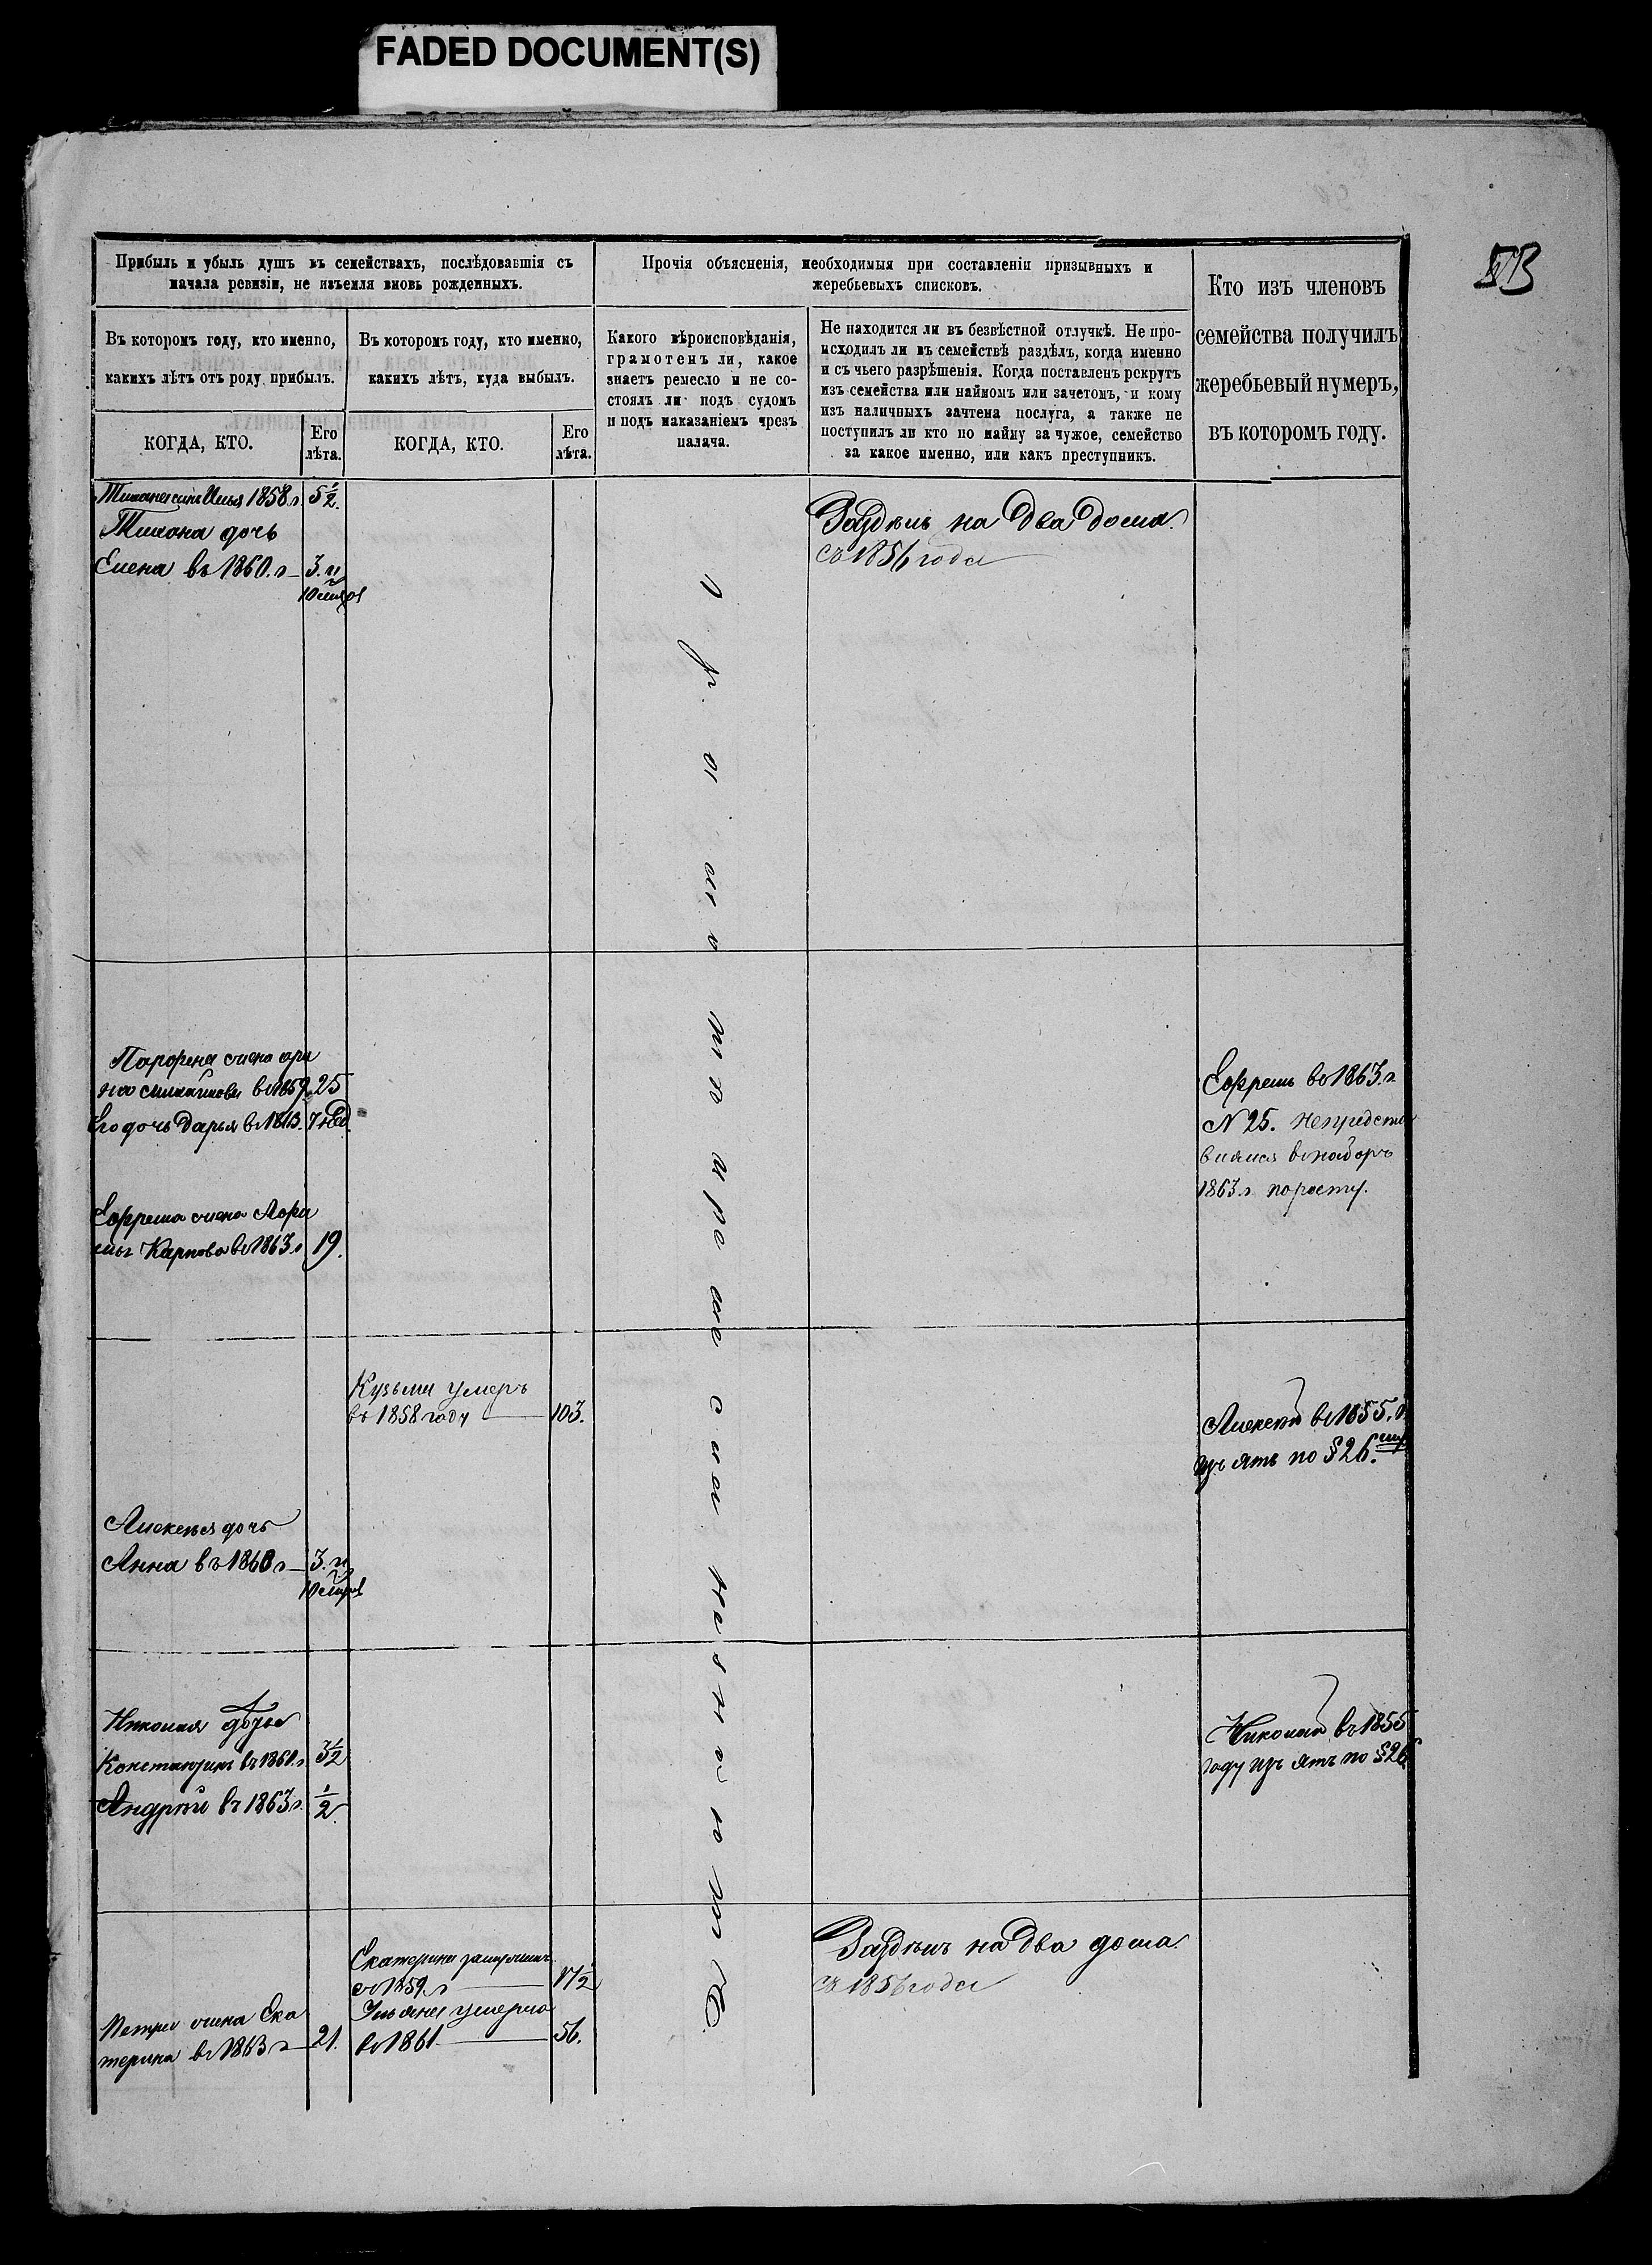 FADED DOCUMENT(S)
Прибыль и убыль душъ въ семействахъ, послѣдовавшія съ
начала ревизіи, не изъемля вновь рожденныхъ.
Въ которомъ году, кто именно,
какихъ лѣтъ отъ роду прибылъ.
КОГДА, КТО.
Его
лѣта.
Въ которомъ году, кто именно,
какихъ лѣтъ, куда выбылъ.
КОГДА, КТО.
Его
лѣта.
Прочія объясненія, необходимыя при составленіи призывныхъ и
жеребьевыхъ списковъ.
Какого вѣроисповѣданія,
грамотенъ ли, какое
знаетъ ремесло и не со-
стоялъ ли подъ судомъ
и подъ наказаніемъ чрезъ
палача.
Не находится ли въ безвѣстной отлучкѣ. Не про-
исходилъ ли въ семействѣ раздѣлъ, когда именно
и съ чьего разрѣшенія. Когда поставленъ рекрутъ
изъ семейства или наймомъ или зачетомъ, и кому
изъ наличныхъ зачтена послуга, а также не
поступилъ ли кто по найму за чужое, семейство
за какое именно, или какъ преступникъ.
Кто изъ членовъ
семейства получилъ
жеребьевый нумеръ,
въ которомъ году.
сынъ Илья 1858 г. 5 1/2.
дочь
Елена въ 1860. г 3. и
10 мѣсяцов
Раздѣлъ на два дома.
съ 1856 года
Парфена жена Ари
на въ 1859 г. 25
Его дочь Дарья въ 1863. 7 нед.
Ефрема жена
Карпова въ 1863. г 19.
Ефремъ въ 1863. г
N 25. Непредста
вился въ наборъ
1863. г по росту.
Кузьма умеръ
въ 1858 году 103.
Алексѣй въ 1855. г
изъ ятъ по § 26.
Алексѣя дочь
Анна въ 1860 г 3. и
10 мѣсяцов
Николая дѣти
Константинъ въ 1860. г 3 1/2
Андрей въ 1863 г. 1/2.
Николай въ 1855
году изъ ятъ по § 26
Екатерина замужемъ
съ 1859. г 17 1/2
Ульяна умерла
въ 1861 56.
Петра жена Ека
терина въ 1863 г 21.
Раздѣлъ на два дома.
съ 1856 года